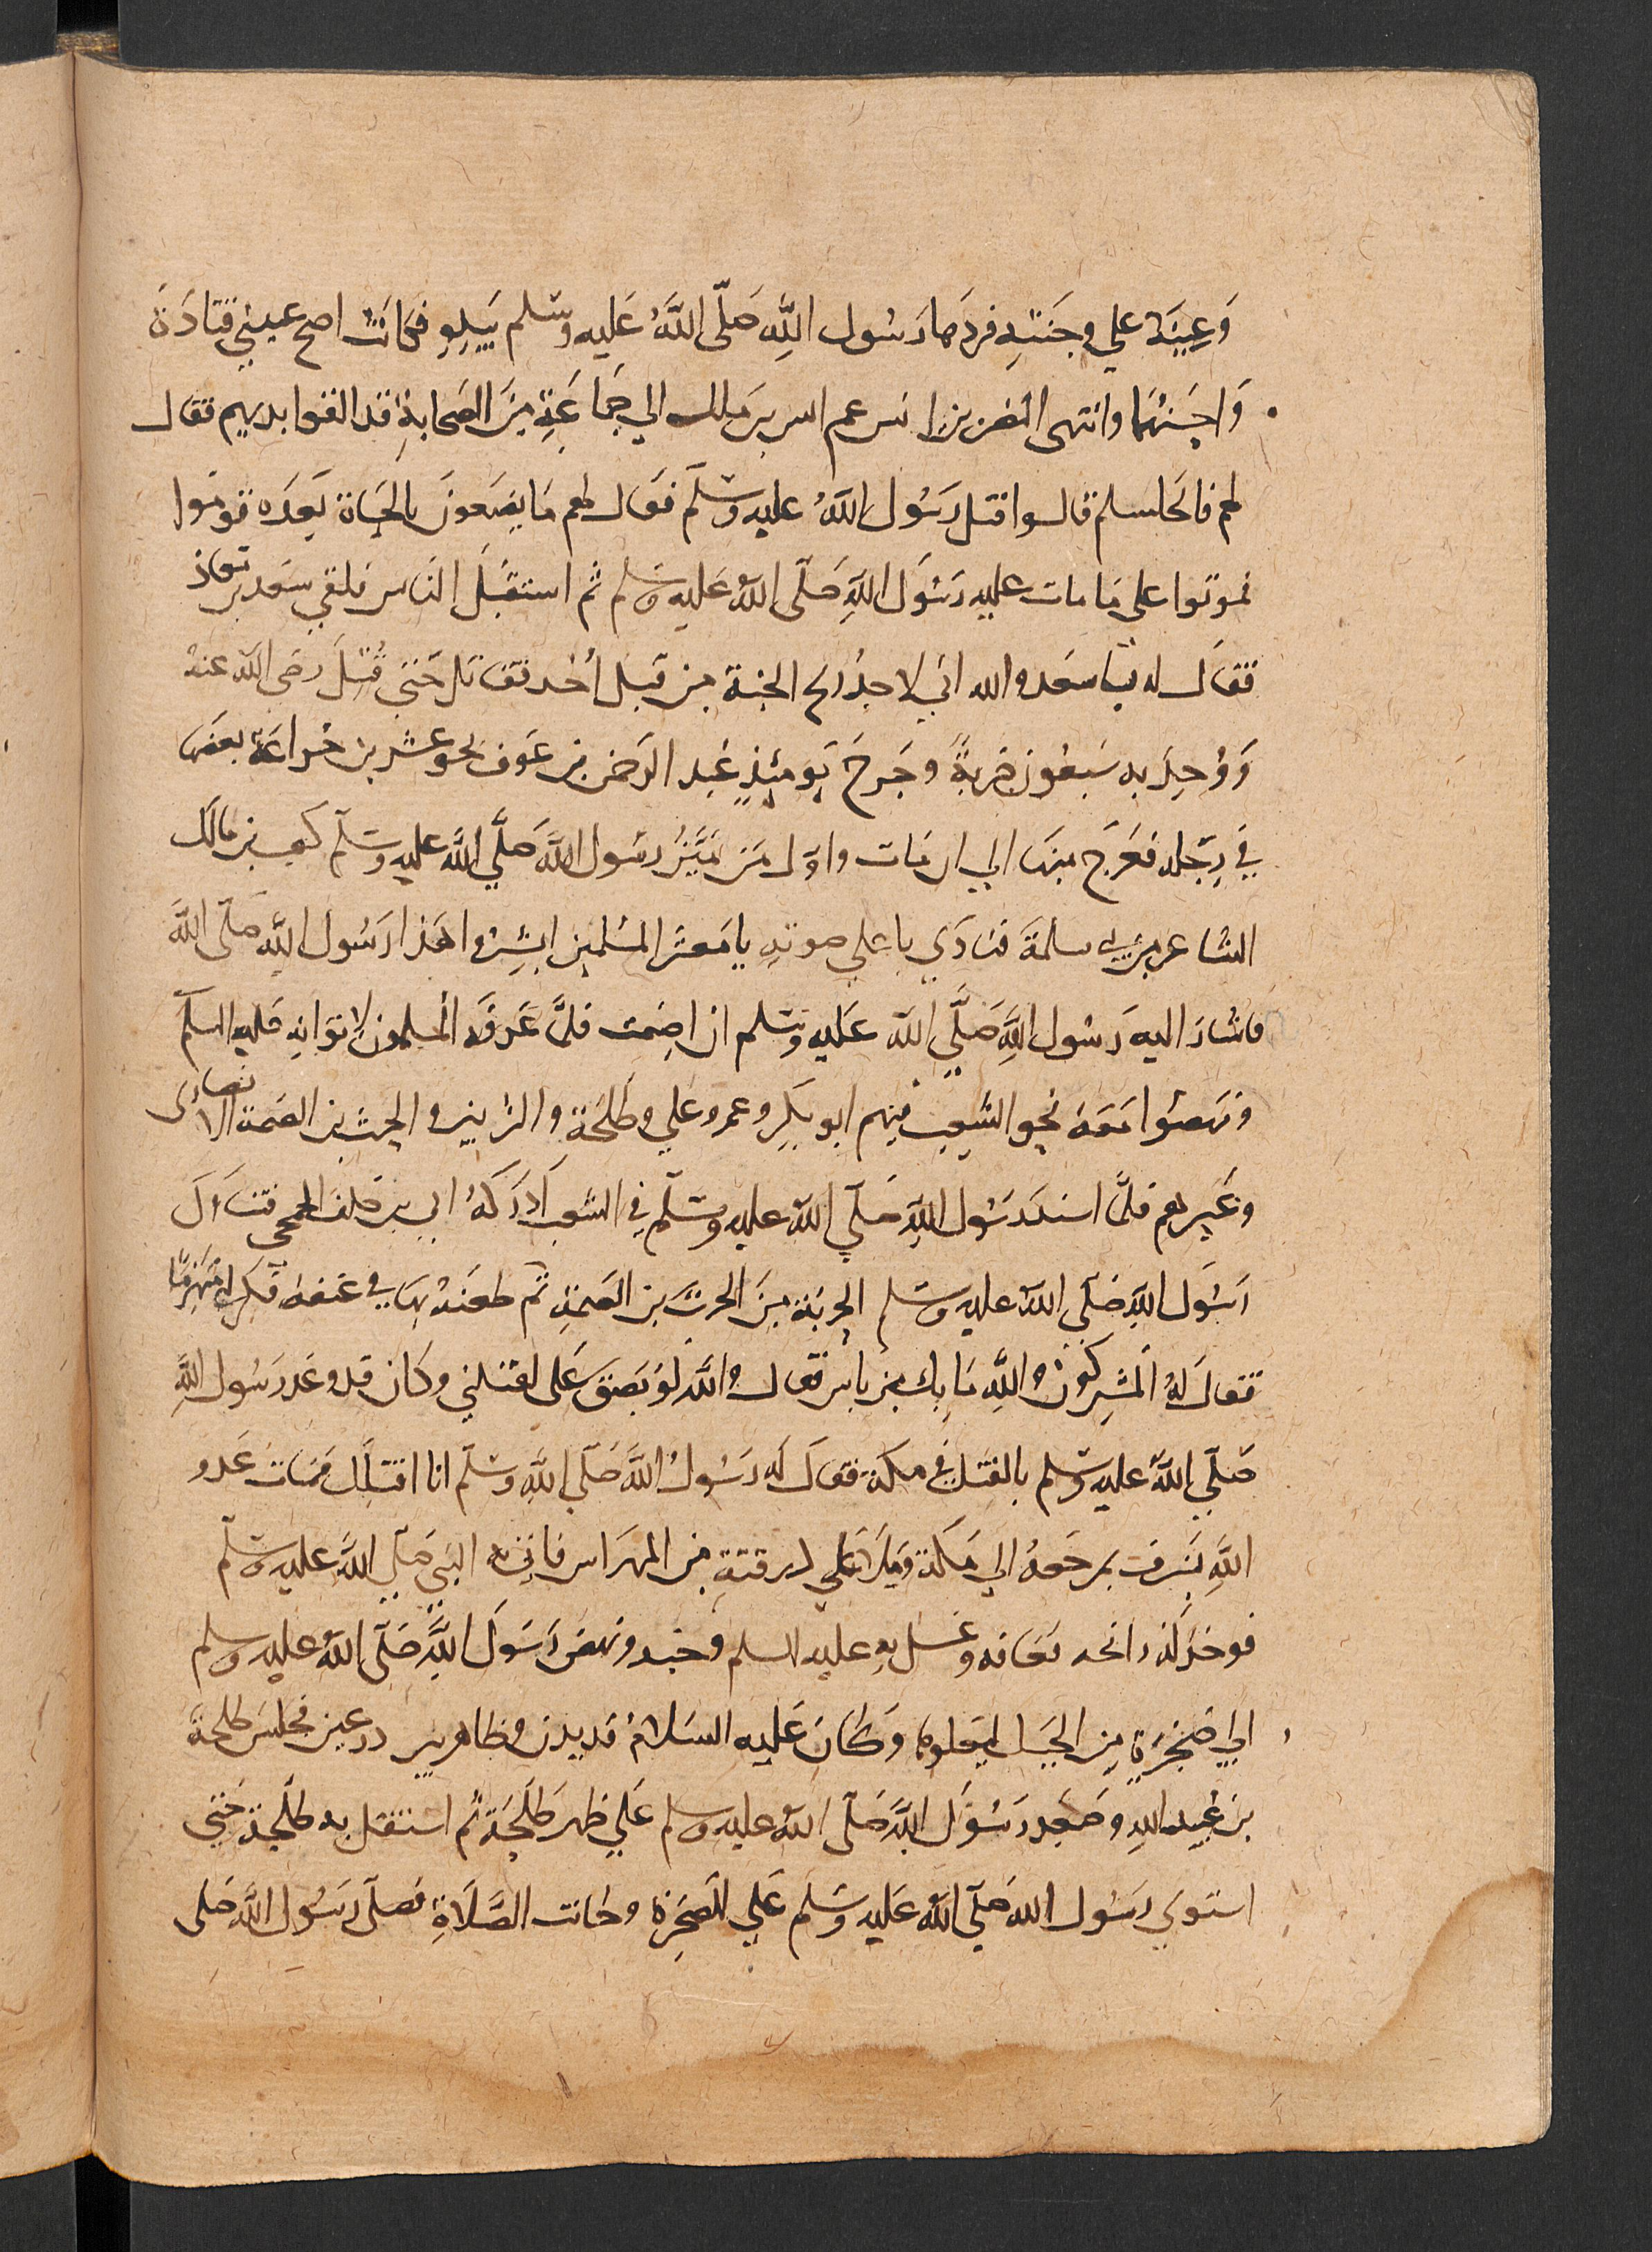 وَعينَهُ علي وجنتهِ فردَها رَسُول اللَّهِ صَلّى اللَّهُ عَليه وسَلم بيَدِهِ فكانَت اصح عيني قتادَة
وَاحسَنهُما وانتهى النضر بن انس عم انس بن ملك الي جَمَاعَةٍ مِنَ الصَحابةِ قد القوا بديهم فقال
لهم ما يجلسكم قالوا قتل رَسُول اللَّهُ عليه وسَلّم فقال لهم مَا يصنعونَ بالحيَاة بَعدَه قوموا
فموتوا على مَا مات عليه رَسُول اللَّهِ صَلّى اللَّه عَليه وسَلم ثم استقبَل الناس فلقي سَعد بن معاذ
فقال له يا سَعد والله اني لاجدُ ريح الجنة من قبَل اُحُد فقاتل حَتي قُتِلَ رضى الله عنهُ
وَوُجِدَ به سَبعُون ضربةً وجَرحَ يَومئِذٍ عَبد الرَحمن بن عَوف نحو عشرين جراحَة بعضهَا
في رِجله فعَرج منهَا الي ان مَات واوّل مَن مَيَّزَ رسُول اللَّه صَلّي اللَّه عليه وسَلّم كعب بن مالك
الشاعر من بني سلمةَ فنادَي باعلي صوتهِ يا مَعشر المسْلمين ابشِرُوا هَذا رَسُول اللَّه صَلّى اللَّهَ
فاشارَ اليه رَسُول اللَّهِ صَلَّي اللَّه عَليه وسَلم ان اصِمت فلمَّا عَرفَه المسلمون لاتوا به عَليه السلم
ونهضوا مَعَهُ نحو الشعِب فيهم ابو بَكرِ وعمر وعلي وطلحَة والزُبير والحرث بن الصمة الانصارى
وغَيرهم فلمَّا اسند رَسُول اللَّهِ صَلّي اللَّه عليه وسَلّم في الشعب اَدرَكهُ ابي بن خلف الجمحى فتناول
رَسُول اللَّهِ صَلّى اللَّه عليه وسَلم الحربَة مِنَ الحرث بن الصمةِ ثم طعَنهُ بهَا في عنقهِ فكر ابي منهزمًا
فقال لهُ المُشِركون واللَّهِ مَا بك من باس فقال واللَّهِ لو بَصَق عَلى لقتلني وكان قد وعَد رَسُول اللَّهِ
صَلّي اللَّه عليه وسَلم بالقتل في مكة فقال لَه رَسُولُ اللَّه صَلّي اللَّهِ وسَلّم انا اقتلك فمَات عَدو
اللَّهِ بسَرف مرجعهُ الي مَكة وَمَلأ علي درقتهِ من المهرَاس فاتي به النبي صَلّي اللَّه عليه وسَلّم
فوجَد لهُ رائحه فعافه وغسَل به عليه السلم وجهه ونهض رَسُول اللَّهِ صَلّى اللَّهُ عليه وسلم
الي صَخرَةٍ مِن الجبَل ليعلوها وَكانَ عَليه السَلامُ قد بدن وظاهر بين درعين فجلسَ طلحة
بن عُبيد اللهِ وصَعِد رَسُول اللَّه صَلّى اللَّهُ عليه وسلم عَلي ظهر طَلحَةَ ثم استقل به طَلحَة حَتي
استوي رَسُول الله صَلّي اللَّهُ عَليه وسَلم عَلي الصَخرَة وحانت الصَّلَاةِ فصَلّى رَسُول اللَّه صَلى